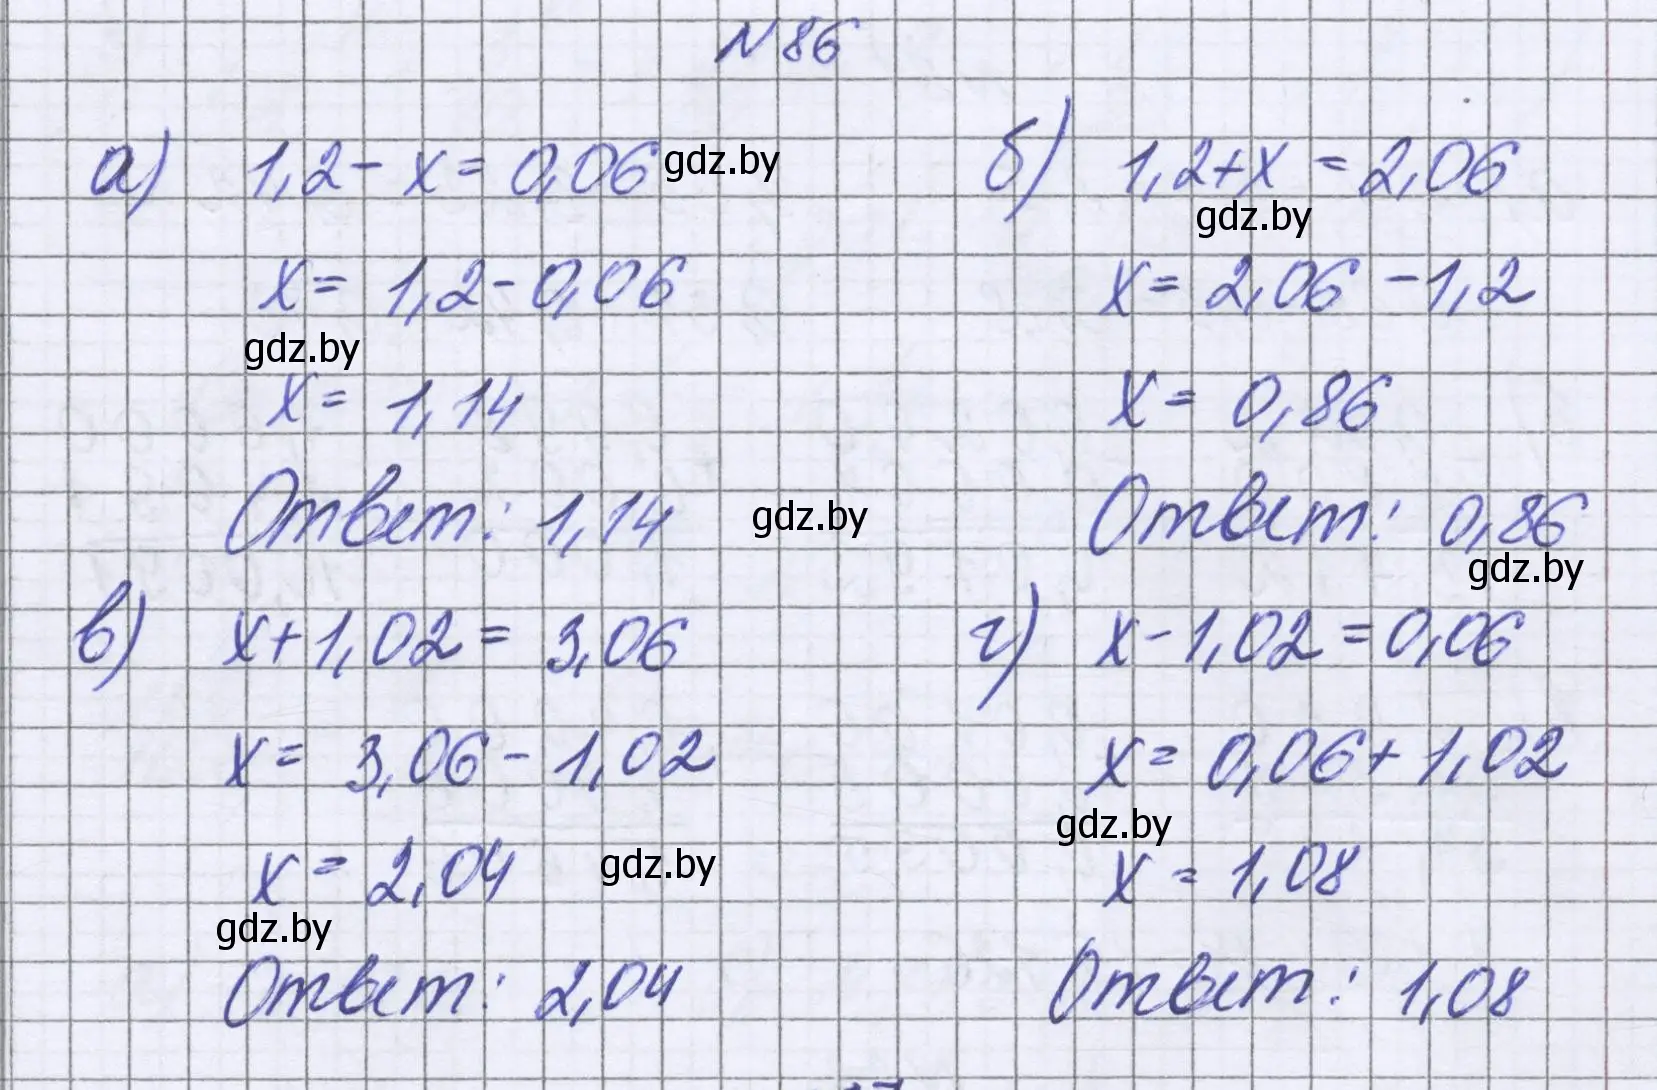 N 86
а) 1,2 - x = 0,06 gdz.by
x = 1,2 - 0,06
gdz.by
x = 1,14
Ответ: 1,14 gdz.by
б) 1,2 + x = 2,06
gdz.by
x = 2,06 - 1,2
x = 0,86
Ответ: 0,86
gdz.by
в) x + 1,02 = 3,06
x = 3,06 - 1,02
x = 2,04 gdz.by
gdz.by
Ответ: 2,04
г) x - 1,02 = 0,06
x = 0,06 + 1,02
gdz.by
x = 1,08
Ответ: 1,08